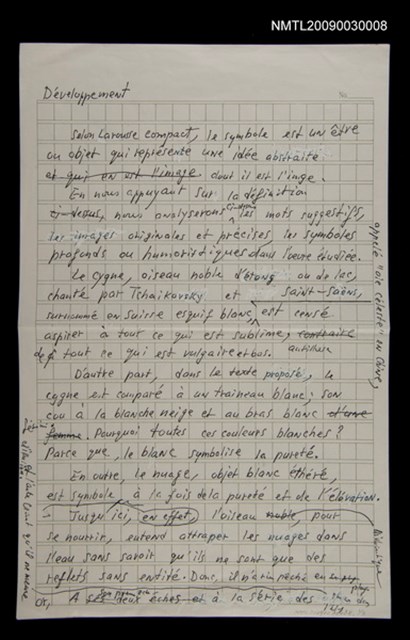 NMTL20090030008
Développement
Selon Larousse compact, le symbole est un être
ou objet qui représente une idée abstraite
et qui en est l'image dont il est l'inge.
En nous appuyant sur la définition
ci-dessus, nous analyserons les mots suggestifs,
les images originales et précises, les symboles
profonds ou humoristiques dans l'œuvre étudiée.
Le cygne, oiseau noble d'étang ou de lac,
chanté par Tchaikovsky et Saint-Saëns,
surnommé en Suisse esquif blanc, est censé
aspirer à tout ce qui est sublime, contraire
de tout ce qui est vulgaire et bas. antithèse
D'autre part, dans le texte proposé, le
cygne est comparé à un traineau blanc; son
cou à la blanche neige et au bras blanc d'une
femme. Pourquoi toutes ces couleurs blanches?
Parce que, le blanc symbolise la pureté.
En outre, le nuage, objet blanc éthéré,
est symbole à la fois de la pureté et de l'élévation.
Jusqu'ici, en effet, l'oiseau noble, pour
se nourrir, entend attraper les nuages dans
l'eau sans savoir qu'ils ne sont que des
reflets sans entité. Donc, il n'a rien pêché en
Or, A ses deux échecs et à la série des
appelé "oie céleste" en Chine,